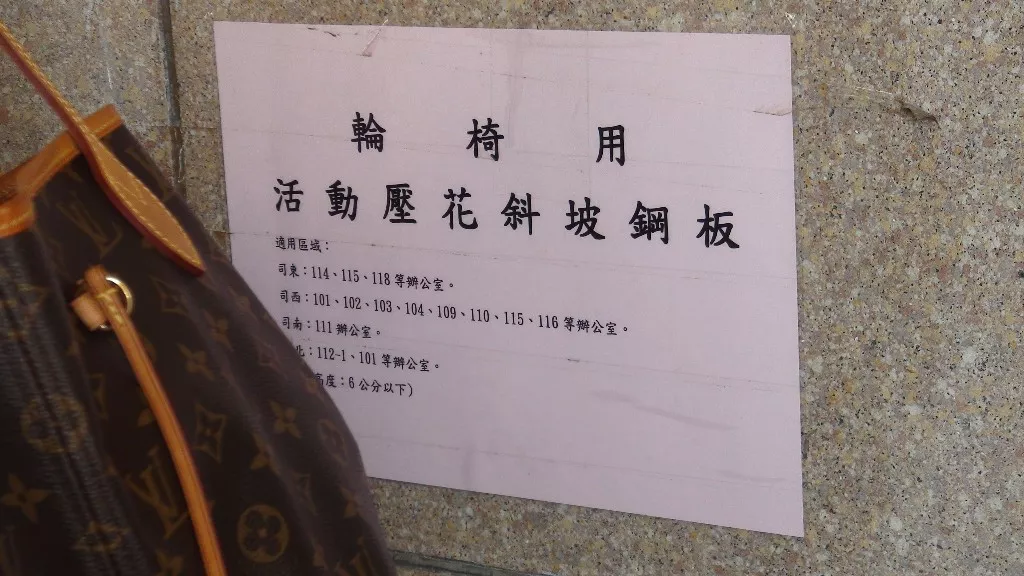 輪椅用
活動壓花斜坡鋼板
適用區域：
司東：114、115、118 等辦公室。
司西：101、102、103、104、109、110、115、116 等辦公室。
司南：111 辦公室。
北：112-1、101 等辦公室。
高度：6 公分以下)